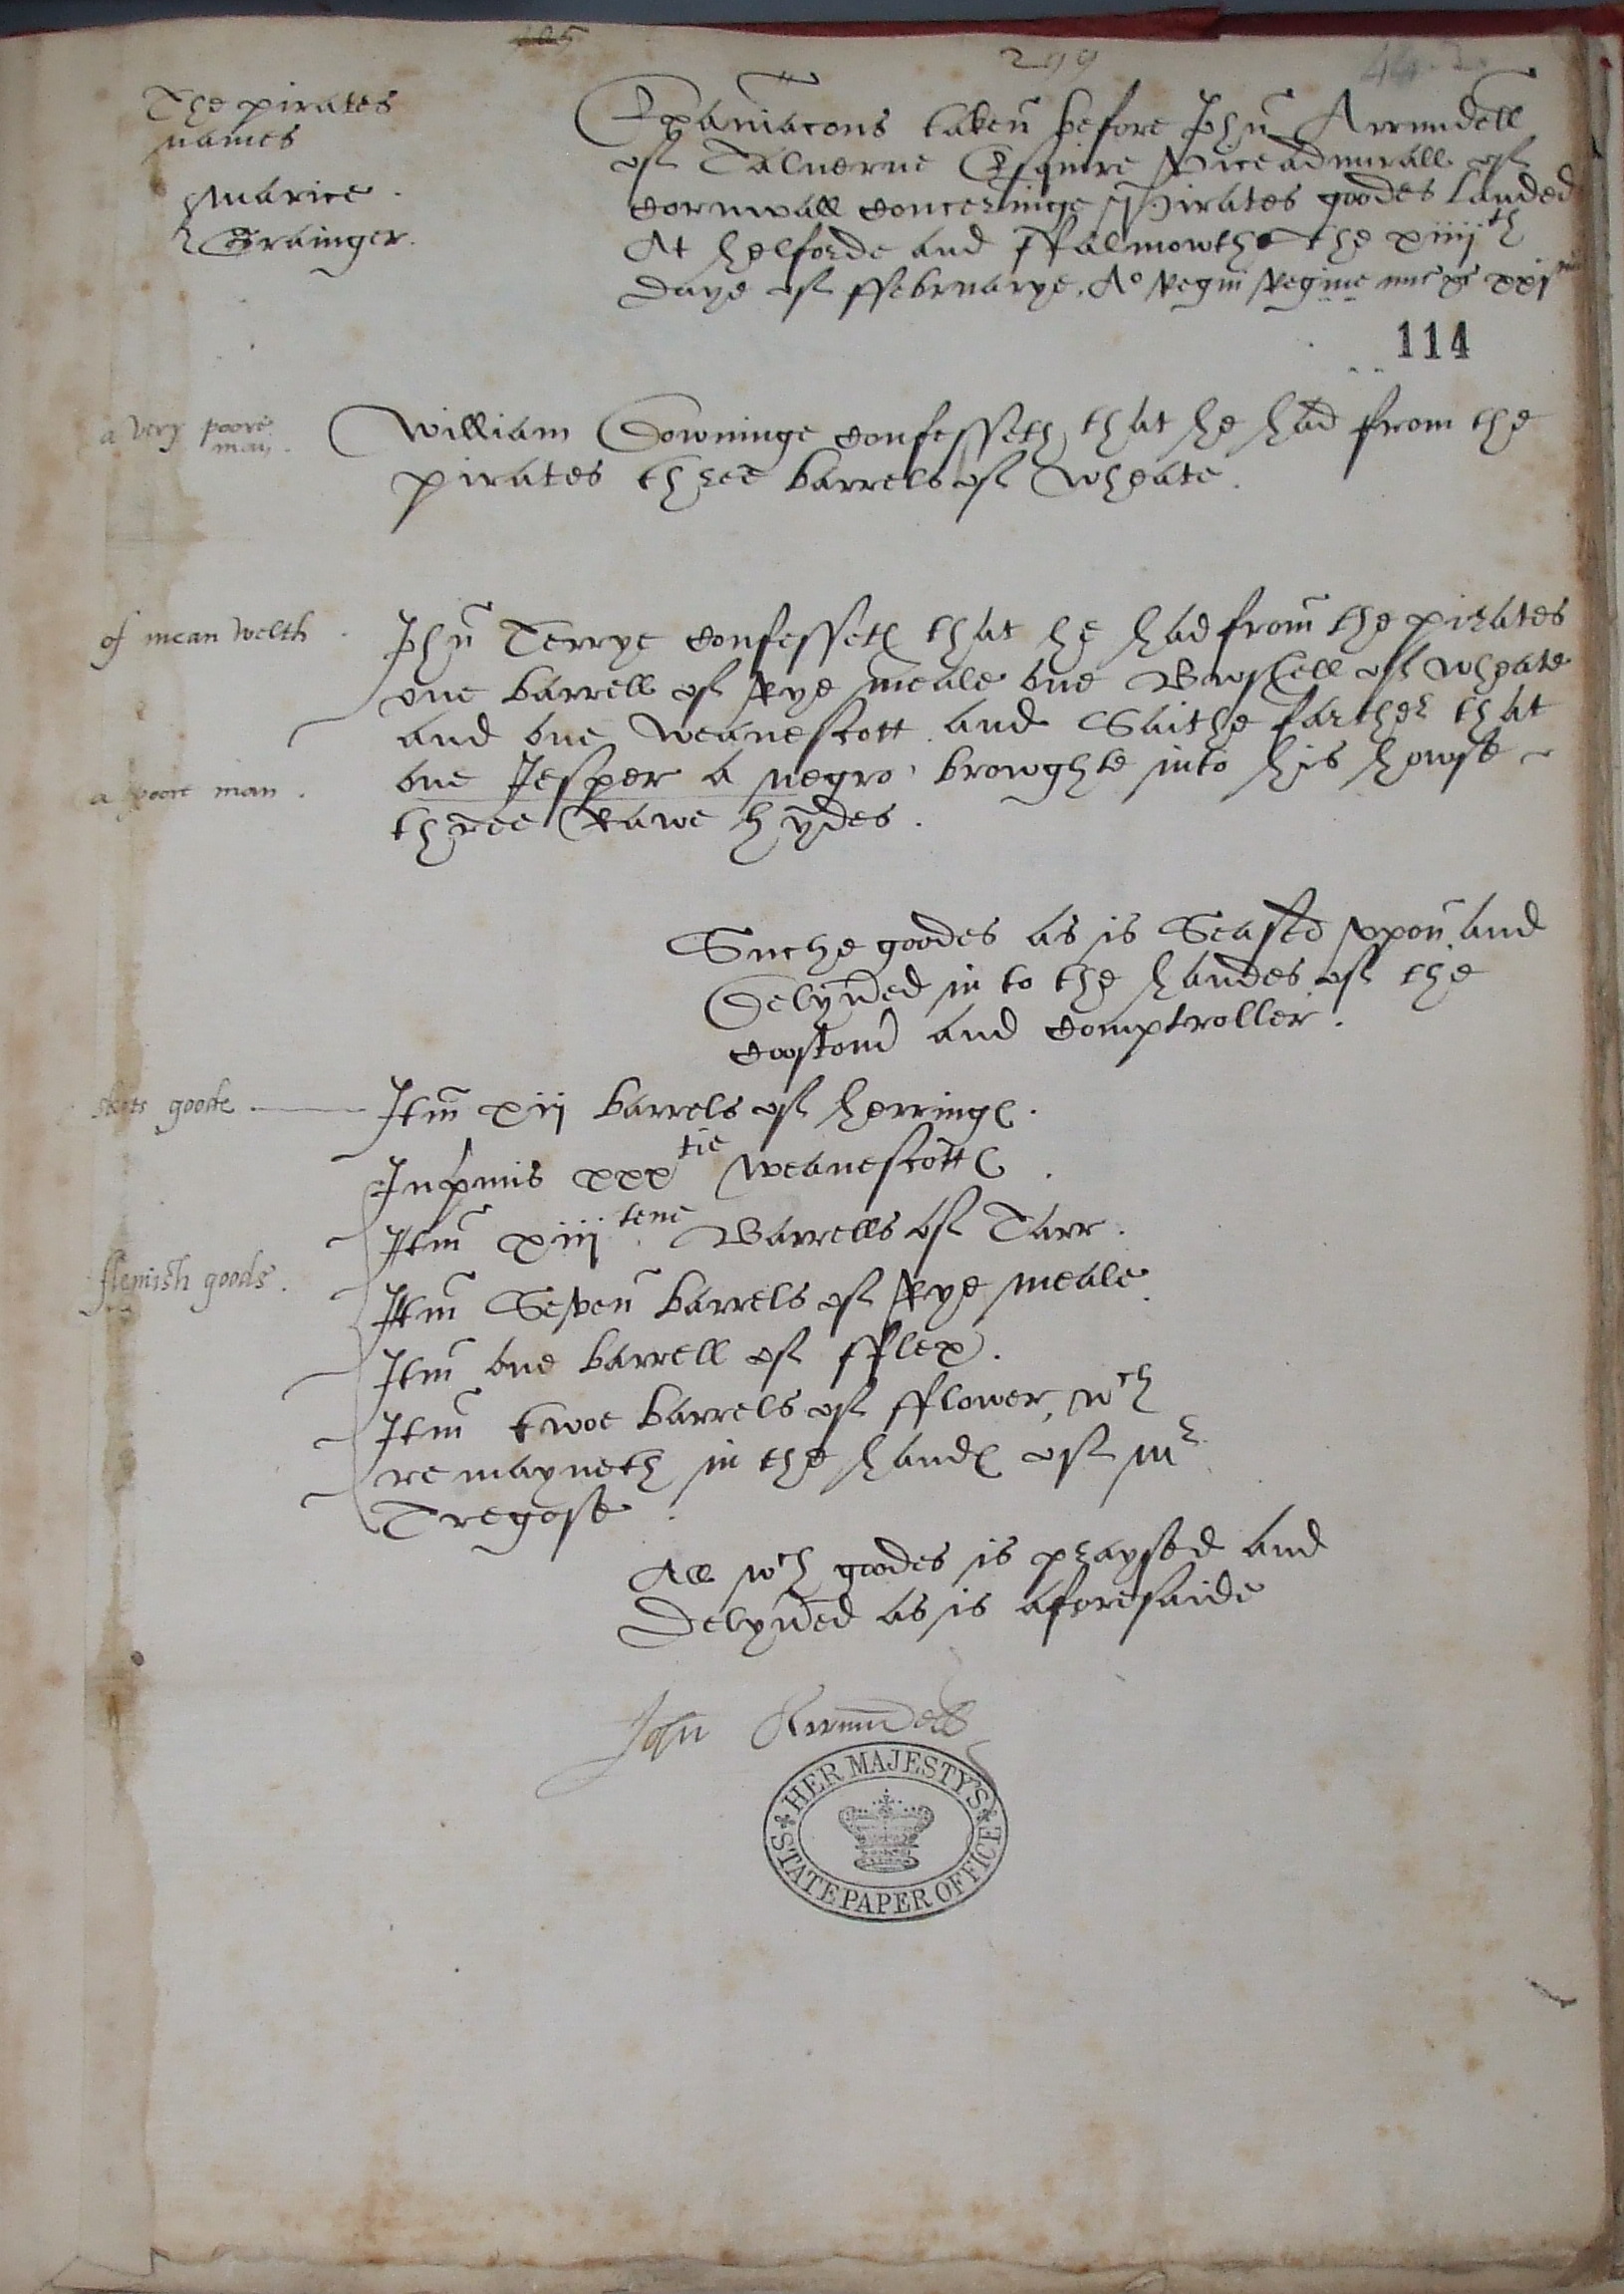 299
The pirates
names
Marice
Grainger.
Exaniacons taken before Jhn Arrundell
of Taluerne Esquire Vice admirall of
Cornwall Concerninge Pirates goodes landed
At helforde and ffalmowthe the xiiijth
Daye of ffebruarye. Ao Regni Regine nre xxj
114
a very poore
man.
William Downinge Confesseth that he had from the
pirates three barrels of Wheate.
of mean welth.
Jhn Terrye Confesseth that he had from the pirates
one barrell of Rye meale one Bushell of wheate
and one weanescott and Saithe farther that
a poore man.
one Jesper a negro browghte into his howse
three Rawe hydes.
Suche goodes as is Seased vpon and
Delyued in to the handes of the
Costom and Comptroller.
skots goode
Itm xij barrels of herring.
Inpmis xxxtie weanescott
Itm xiijtene Barrells of Tarr.
flemish goods.
Itm Seven barrels of Rye meale.
Itm one barrell of fflex.
Itm twoe barrels of fflower, wch
remayneth in the hand of mr
Tregose.
All wch goodes is praysed and
Delyued as is aforesaide
John Arrundell
HER MAJESTY'S
STATE PAPER OFFICE